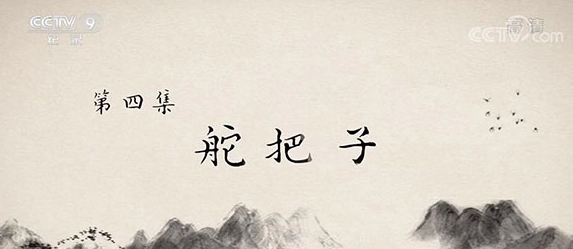 CCTV 9
纪录
高清
CCTV.com
第四集
舵把子